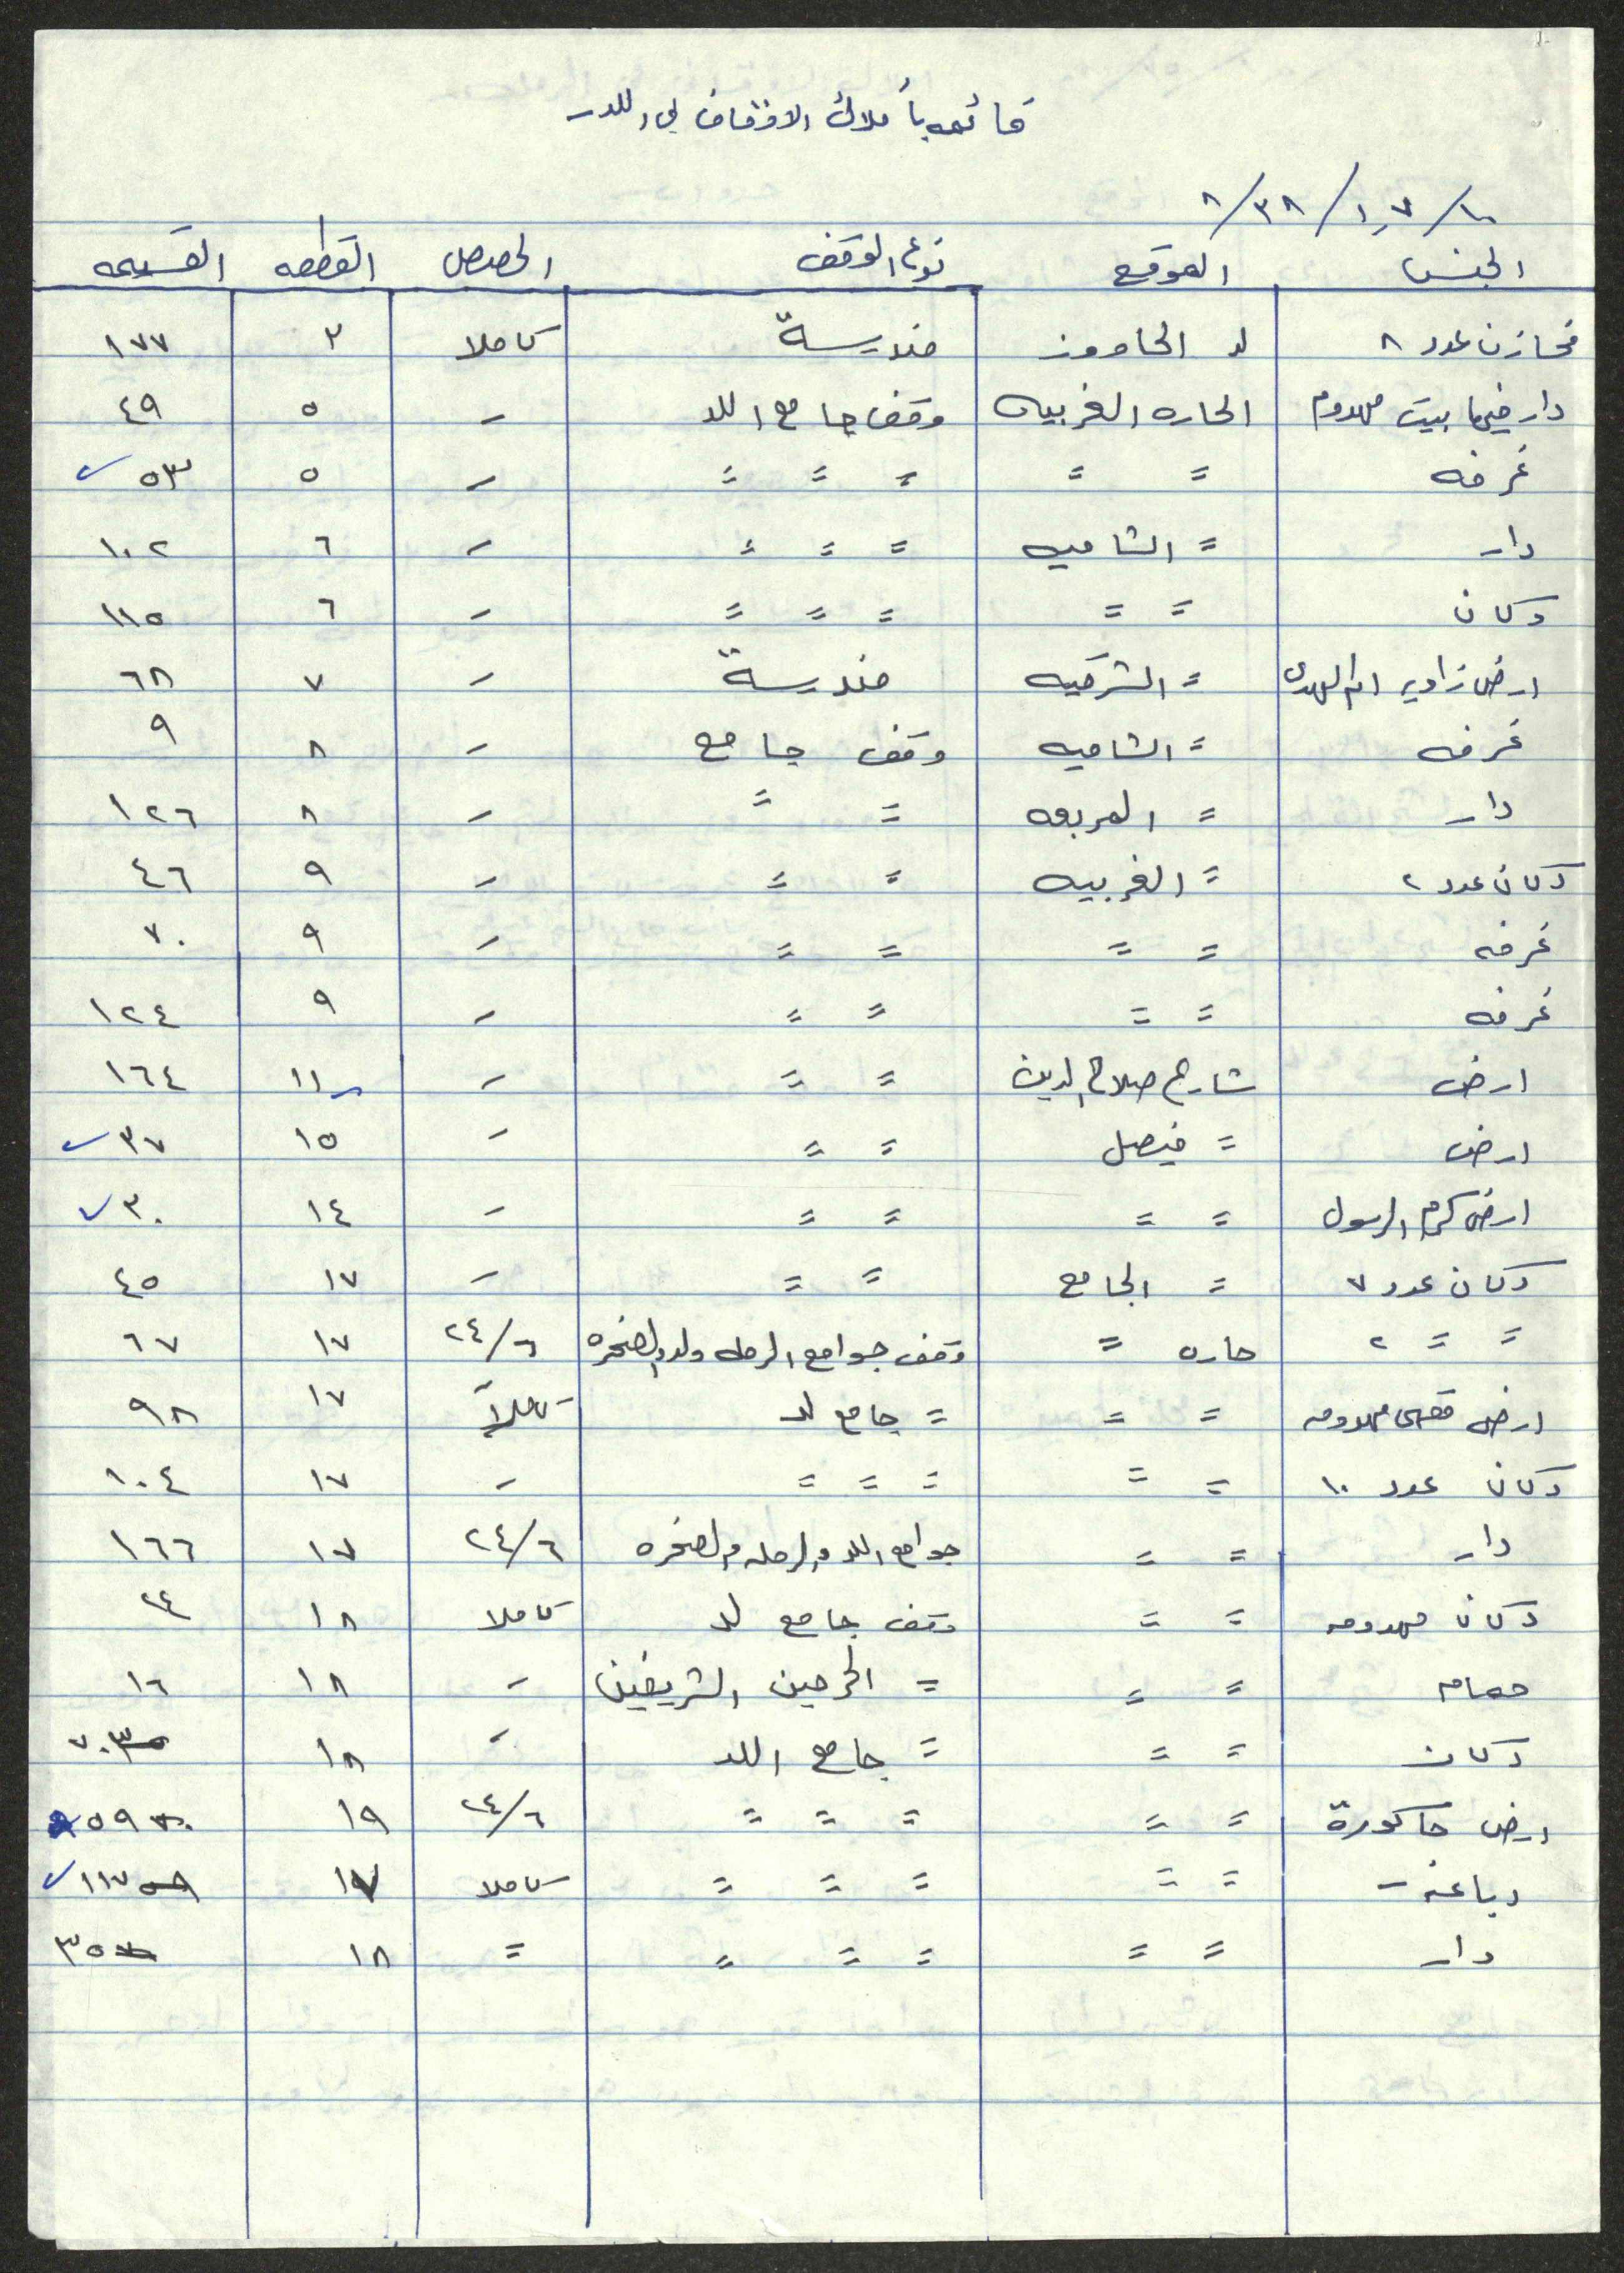 قائمه بأملاك الاوقاف في اللد
٨/٣٨/١,٧/١٠
الجنس الموقع نوع الوقف الحصص القطعه القسيمه
مخازن عدد ٨ لد الحاووز مندرسة كاملا ٣ ١٧٧
دار فيها بيت مهدوم الحاره الغربيه وقف جامع اللد - ٥ ٤٩
غرفه = = = = = - ٥ ٥٣ ✓
دار = الشاميه = = = - ٦ ١٠٢
دكان = = = = = - ٦ ١١٥
ارض زاويه ام المهدى = الشرقيه مندرسة - ٧ ٦٨
غرفه = الشاميه وقف جامع - ٨ ٩
دار = المربعه = = - ٨ ١٢٦
دكان عدد ٢ = الغربيه = = - ٩ ٤٦
غرفه = = = = - ٩ ٧٠
غرفه = = = = - ٩ ١٢٤
ارض شارع صلاح الدين = = - ١١ ١٦٤
ارض = فيصل = = - ١٥ ٣٧ ✓
ارض كرم الرسول = = = = - ١٤ ٣٠ ✓
دكان عدد ٧ = الجامع = = - ١٧ ٤٥
= = ٢ حاره = وقف جوامع الرمله ولد والصخره ٢٤/٦ ١٧ ٦٧
ارض مقهى مهدومه = = = جامع لد كاملاً ١٧ ٩٨
دكان عدد ١٠ = = = = = - ١٧ ١٠٤
دار = = جوامع اللد والرمله والصخره ٢٤/٦ ١٧ ١٦٦
دكان مهدومه = = وقف جامع لد كاملا ١٨ ٢٤
حمام = = = الحرمين الشريفين - ١٨ ١٦
دكان = = = جامع اللد - ١٨ ٧٠
ارض حاكورة = = = = = ٢٤/٦ ١٩ ٥٩
دباغه = = = = = كاملا ١٧ ١١٧ ✓
دار = = = = = = ١٨ ٣٥